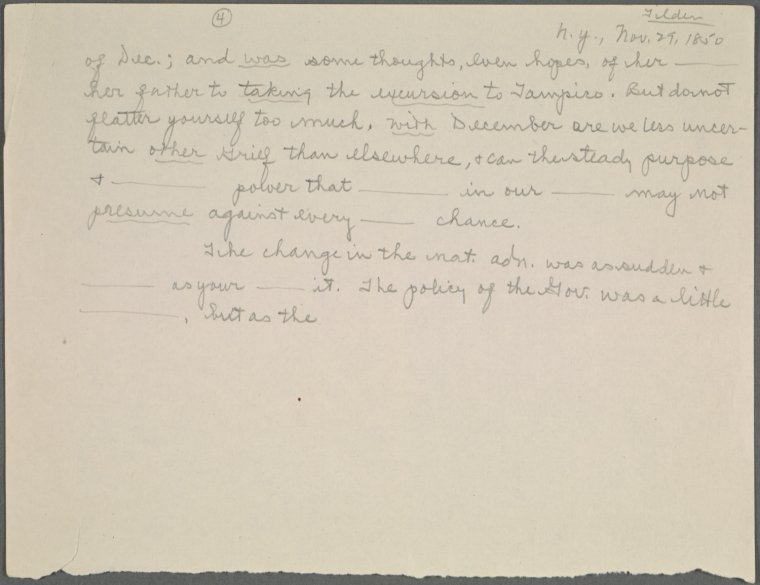 4
Tilden
N.Y., Nov. 29, 1850
of Dec.; and was some thoughts, even hopes, of her ____
her father to taking the excursion to Tampico. But do not
flatter yourself too much. With December are we less uncer-
tain other grief than elsewhere, & can the steady purpose
& ____ power that ____ in our ____ may not
presume against every ____ chance.
The change in the nat. adn. was as sudden &
____ as your ____ it. The policy of the Gov. was a little
____, but as the